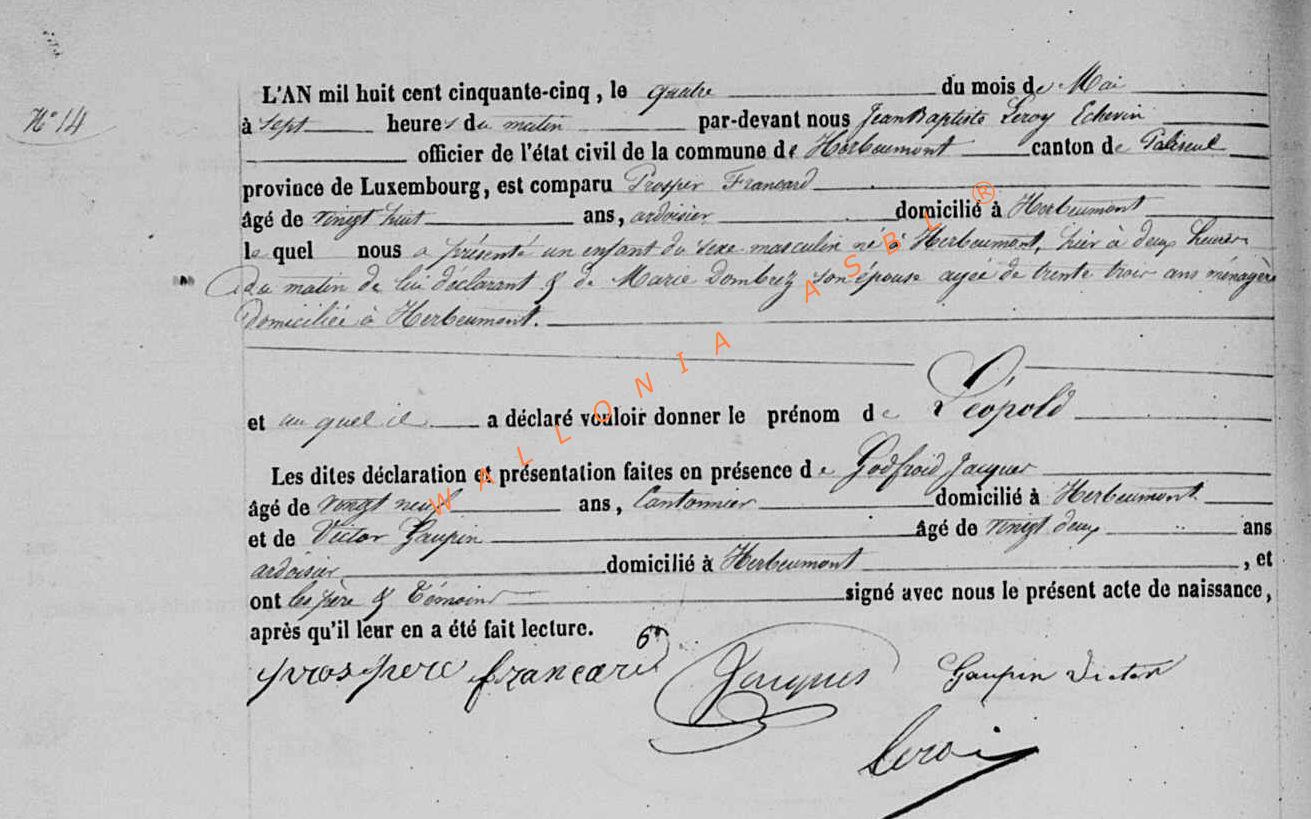 N° 14
L'AN mil huit cent cinquante-cinq, le quatre du mois de Mai
à sept heures du matin par-devant nous Jean Baptiste Leroy Echevin
officier de l'état civil de la commune de Herbeumont canton de Paliseul
province de Luxembourg, est comparu Prosper Francard
âgé de vingt huit ans, ardoisier domicilié à Herbeumont
le quel nous a présenté un enfant du sexe masculin né à Herbeumont, hier à deux heures
du matin de lui déclarant & de Marie Dombrez son épouse agée de trente trois ans ménagère
domiciliée à Herbeumont.
et au quel il a déclaré vouloir donner le prénom de Léopold
Les dites déclaration et présentation faites en présence de Godfroid Jacques
âgé de vingt neuf ans, Cantonnier domicilié à Herbeumont
et de Victor Gaupin âgé de vingt deux ans
ardoisier domicilié à Herbeumont, et
ont les père & Témoins signé avec nous le présent acte de naissance,
après qu'il leur en a été fait lecture.
prospere francard Jacques Gaupin Victor
Leroi
WALLONIA ASBL ®